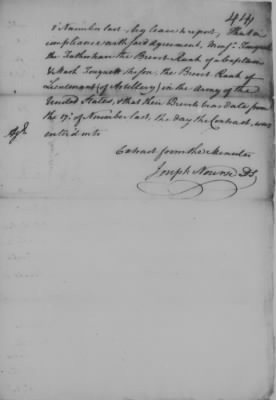 414
November last beg leave to report, That in
compliance with said Agreement, Mess.rs
the Father have the Brevet Rank of a Captain
& the Son, the Brevet Rank of
Lieutenant (of Artillery) in the Army of the
United States, & that their Brevets bear Date from
the 17th of November last, the day the Contract was
entered into
Extract from the Minutes
Joseph Nourse DS